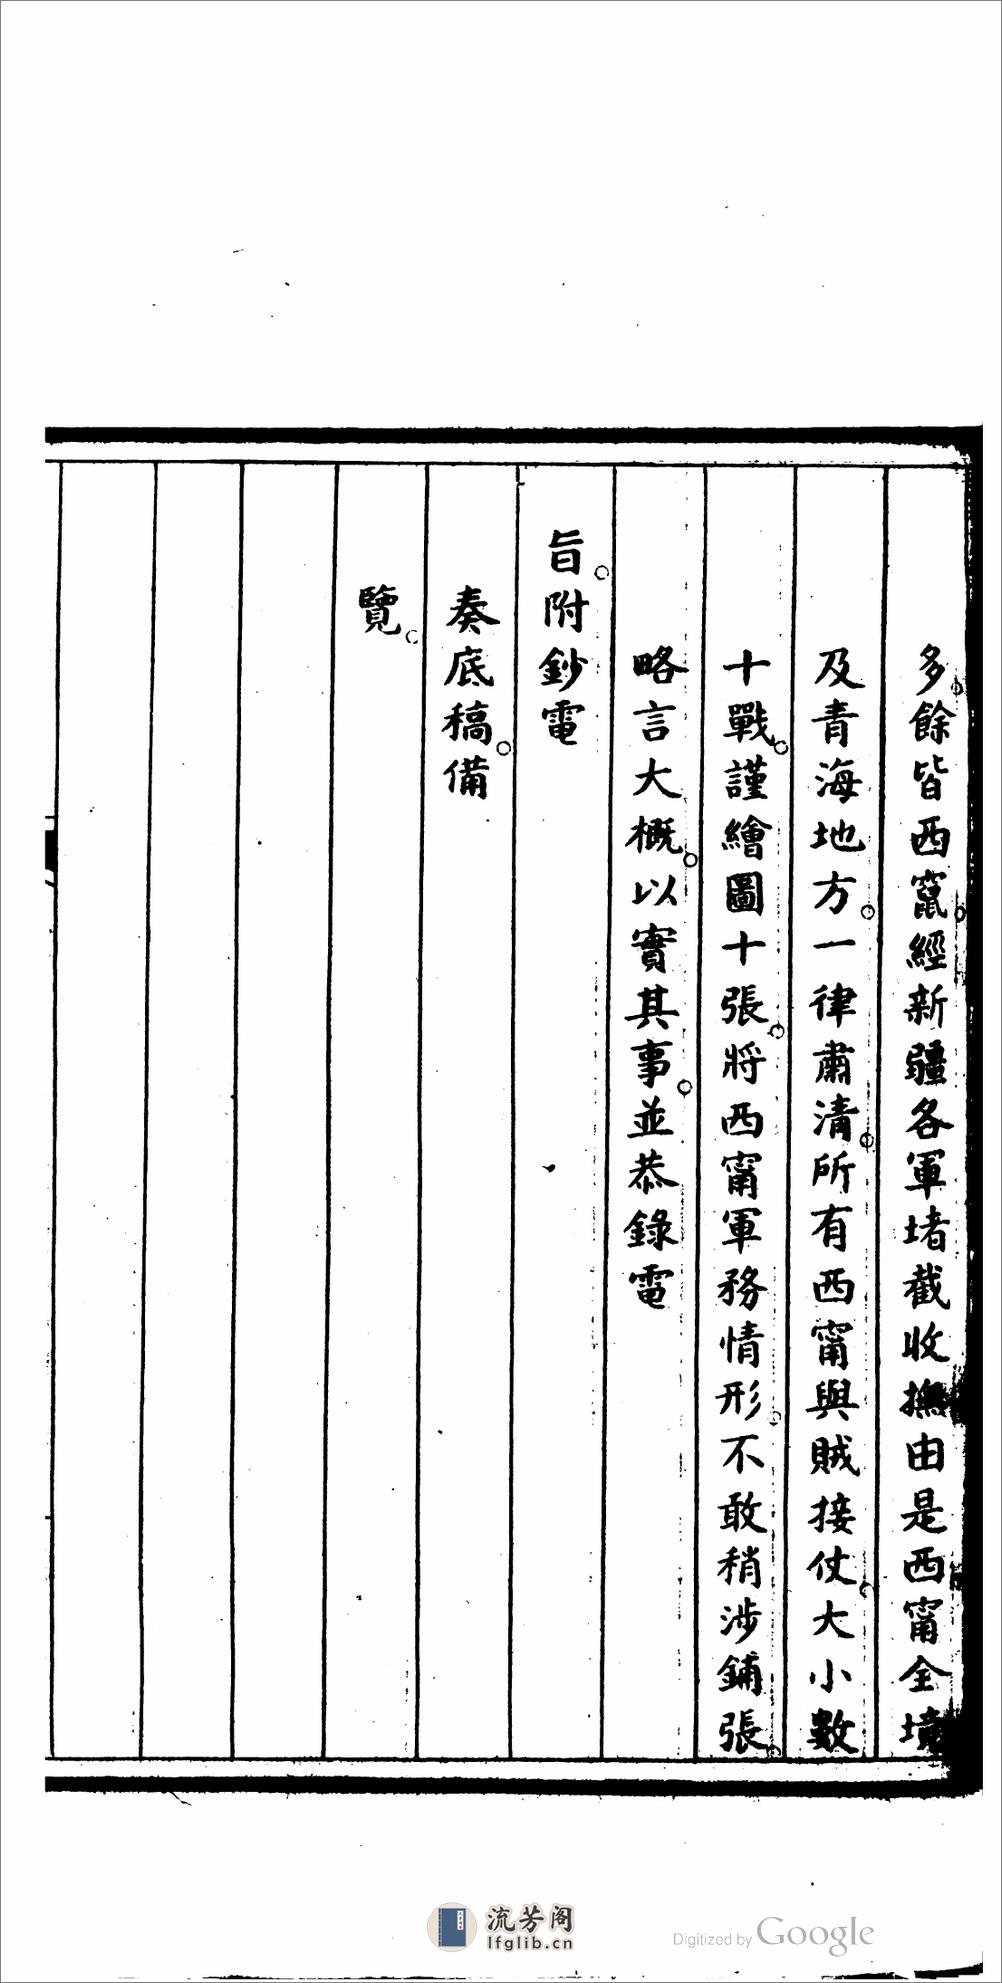 多餘皆西竄經新疆各軍堵截收撫由是西甯全境
及青海地方一律肅清所有西甯與賊接仗大小數
十戰謹繪圖十張將西甯軍務情形不敢稍涉鋪張
略言大概以實其事並恭錄電
旨附鈔電
奏底稿備
覽
流芳阁
lfglib.cn
Digitized by Google